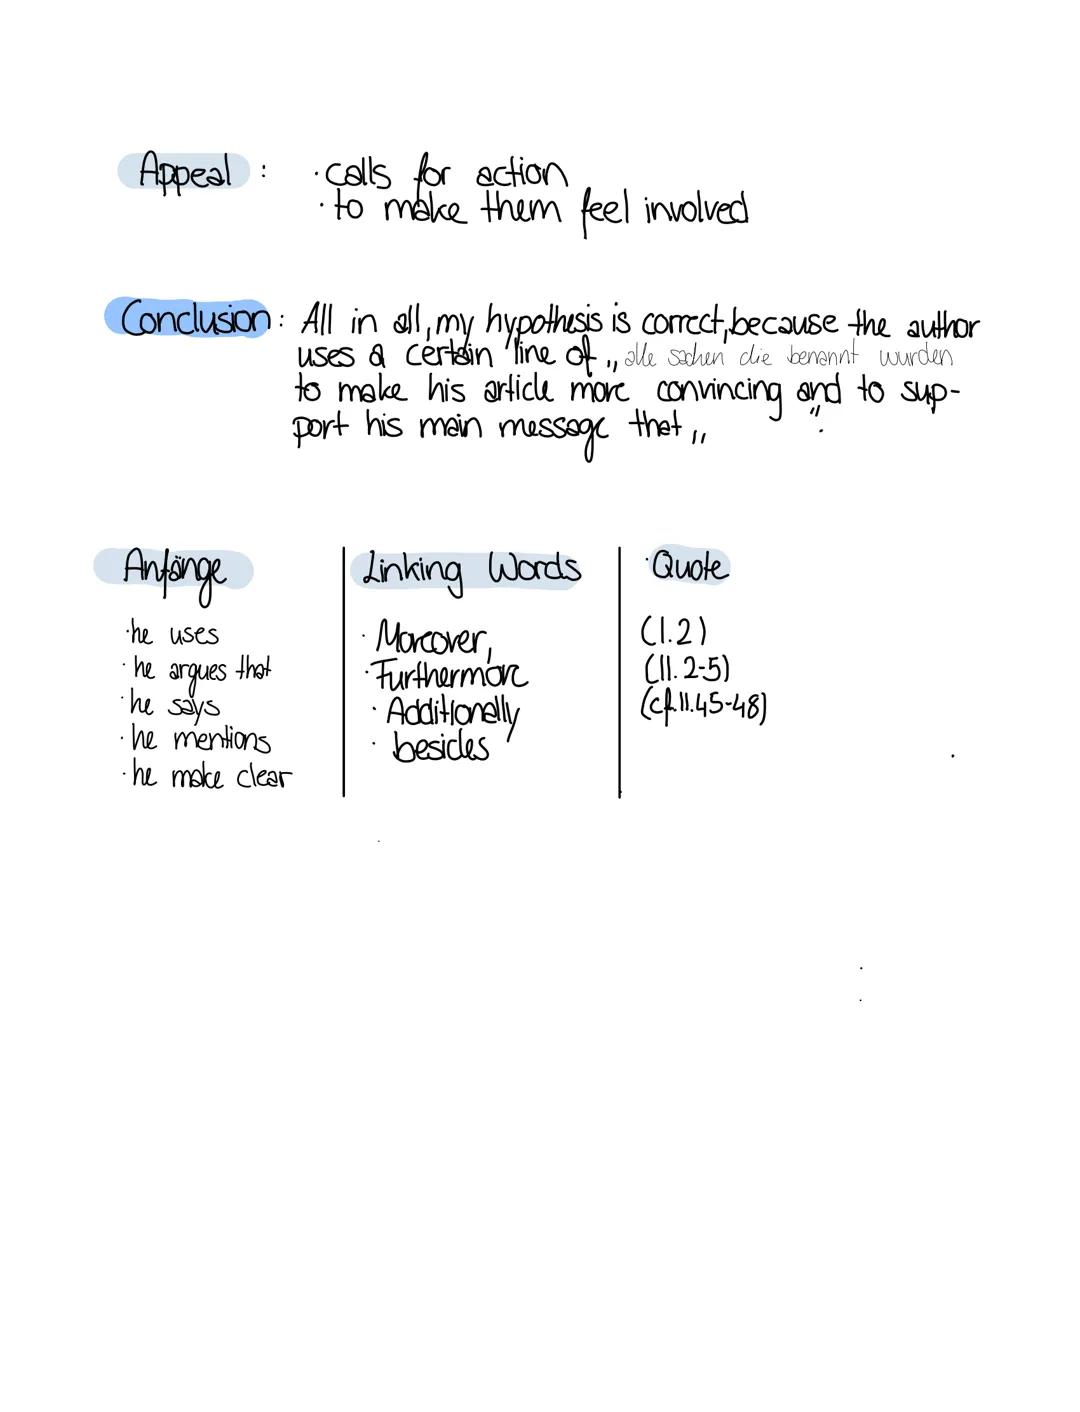 Appeal : · calls for action
· to make them feel involved
Conclusion : All in all, my hypothesis is correct, because the author
uses a certain line of „ alle sachen die benannt wurden
to make his article more convincing and to sup-
port his main message that „ ".
Anfänge
· he uses
· he argues that
· he says
· he mentions
· he make clear
Linking Words
· Moreover,
· Furthermore
· Additionally
· besides
· Quote
(l.2)
(ll. 2-5)
(cf.ll.45-48)